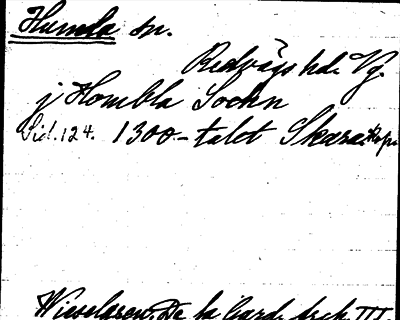 Humla sn.
Redvägs hd. Vg.
j Hombla Sochn
Sid. 124. 1300-talet Skara
Wieselgren, De la Gard. Arch. III.